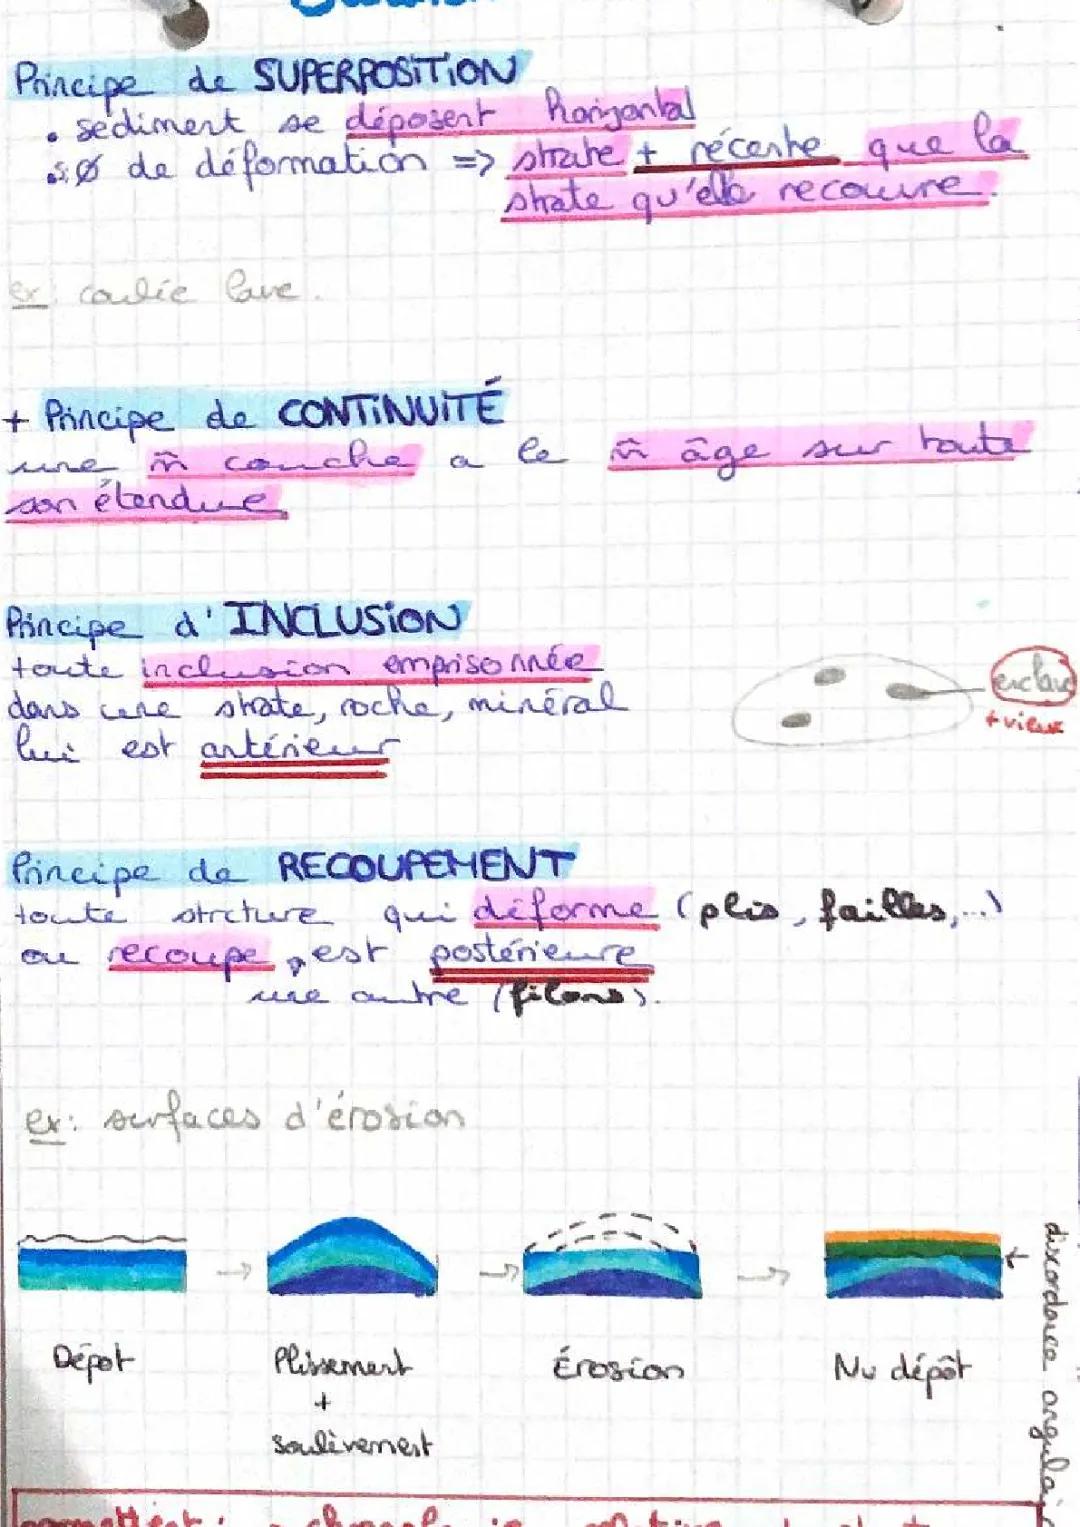 Principe de SUPERPOSITION
• sédiment se déposent horizontal
si Ø de déformation => strate + récente que la
strate qu'elle recouvre.
ex: coulée lave.
+ Principe de CONTINUITÉ
une m̂ couche a le m̂ âge sur toute
son étendue
Principe d'INCLUSION
toute inclusion emprisonnée
dans une strate, roche, minéral
lui est antérieur
enclave
+ vieux
Principe de RECOUPEMENT
toute strcture qui déforme (plis, failles,...)
ou recoupe, est postérieure
une autre (filons).
ex: surfaces d'érosion
Dépot
Plissement
+
Soulèvement
Érosion
Nv dépôt
discordance angulai